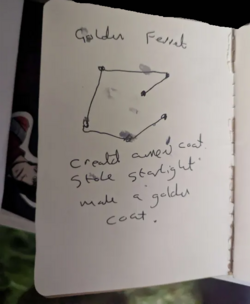 Golden Ferret
created a new coat
stole starlight
made a golden
coat.